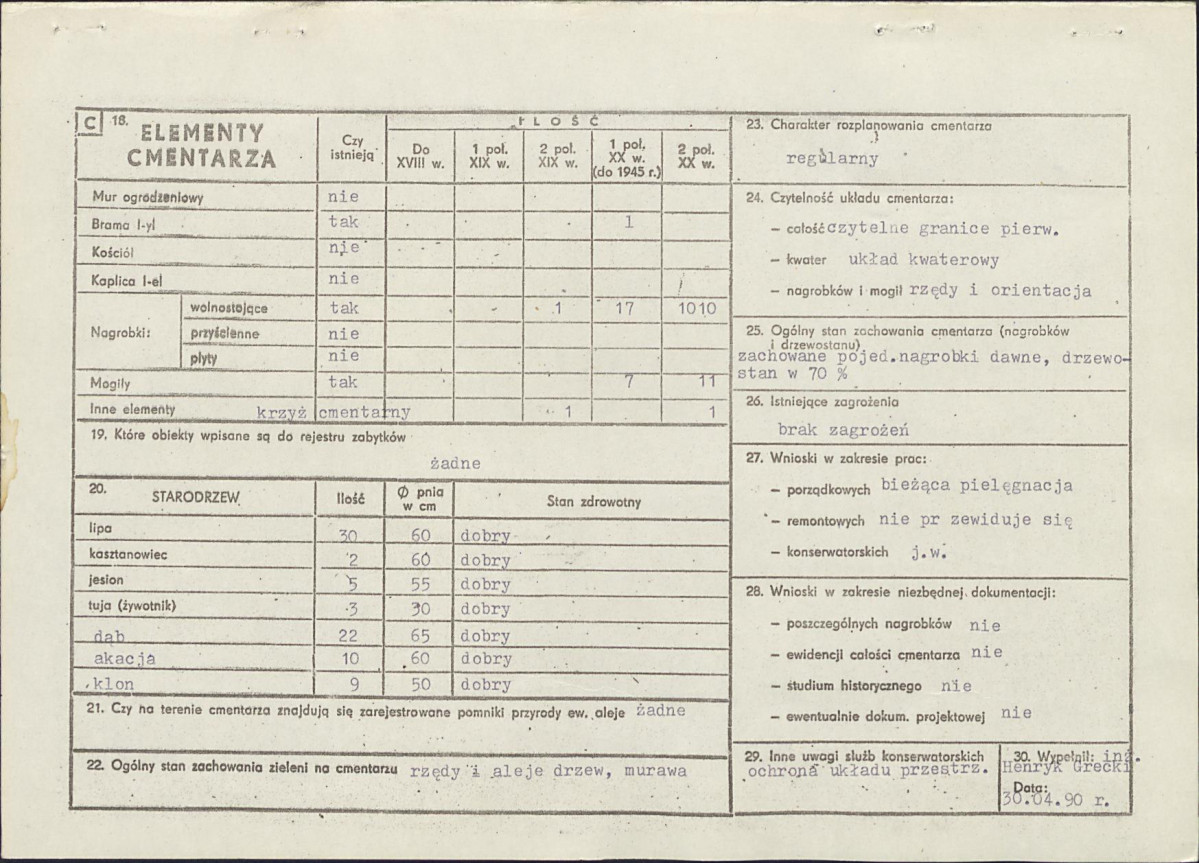 C 18. ELEMENTY CMENTARZA
Czy istnieją
IŁOŚĆ
Do XVIII w.
1 poł. XIX w.
2 poł. XIX w.
1 poł. XX w. (do 1945 r.)
2 poł. XX w.
Mur ogrodzeniowy nie
Brama /-y/ tak 1
Kościół nie
Kaplica /-e/ nie
Nagrobki: wolnostojące tak 1 17 1010
przyścienne nie
płyty nie
Mogiły tak 7 11
Inne elementy krzyż cmentarny 1 1
19. Które obiekty wpisane są do rejestru zabytków
żadne
20. STARODRZEW Ilość Ø pnia w cm Stan zdrowotny
lipa 30 60 dobry
kasztanowiec 2 60 dobry
jesion 5 55 dobry
tuja (żywotnik) 3 30 dobry
dąb 22 65 dobry
akacja 10 60 dobry
klon 9 50 dobry
21. Czy na terenie cmentarza znajdują się zarejestrowane pomniki przyrody ew. aleje żadne
22. Ogólny stan zachowania zieleni na cmentarzu rzędy i aleje drzew, murawa
23. Charakter rozplanowania cmentarza
regularny
24. Czytelność układu cmentarza:
– całość czytelne granice pierw.
– kwater układ kwaterowy
– nagrobków i mogił rzędy i orientacja
25. Ogólny stan zachowania cmentarza (nagrobków
i drzewostanu)
zachowane pojed.nagrobki dawne, drzewo-
stan w 70 %
26. Istniejące zagrożenia
brak zagrożeń
27. Wnioski w zakresie prac:
– porządkowych bieżąca pielęgnacja
– remontowych nie pr zewiduje się
– konserwatorskich j.w.
28. Wnioski w zakresie niezbędnej dokumentacji:
– poszczególnych nagrobków nie
– ewidencji całości cmentarza nie
– studium historycznego nie
– ewentualnie dokum. projektowej nie
29. Inne uwagi służb konserwatorskich
ochrona układu przestrz.
30. Wypełnił: inż.
Henryk Grecki
Data:
30.04.90 r.